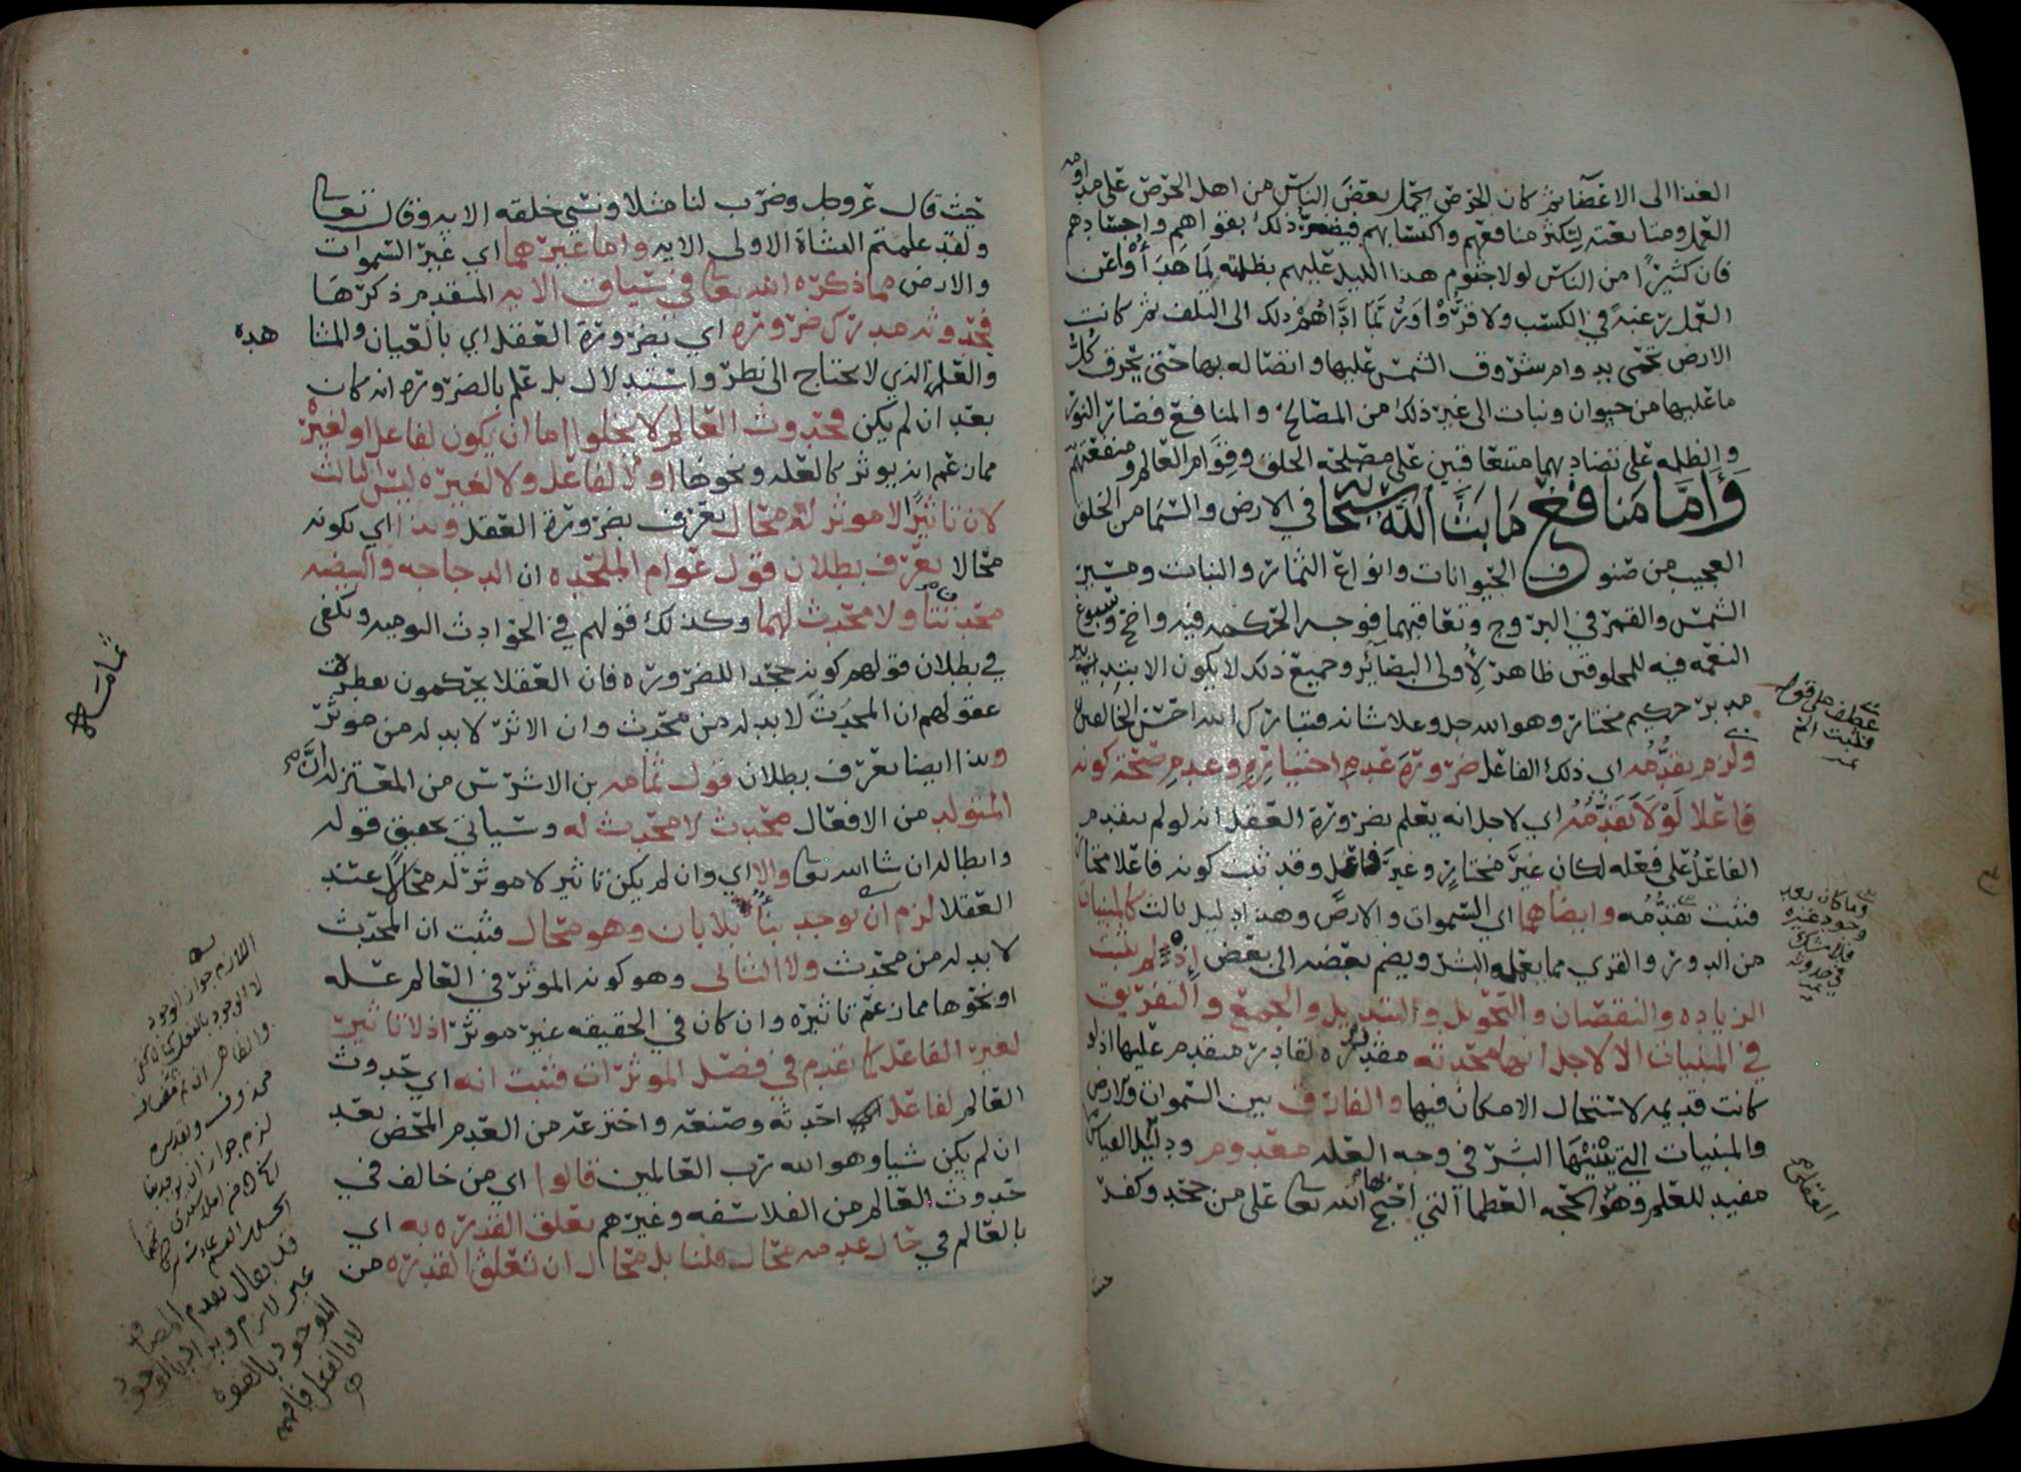 الغذا الى الاعضا ثم كان الحرص يحمل بعض الناس من اهل الحرص على مداومة
العمل ومتابعته لتكثر منافعهم واكتسابهم فيضر ذلك بقواهم واجسادهم
فان كثيرًا من الناس لولا جثوم هذا الليل عليهم بظلمته لما هدأوا عن
العمل رغبة في الكسب ولا قروا وربما اداهم ذلك الى التلف ثم كانت
الارض تحمى بدوام شروق الشمس عليها واتصاله بها حتى يحرق كل
ما عليها من حيوان ونبات الى غير ذلك من المصالح والمنافع فصار النور
والظلمه على تضادهما متعاقبين على مصلحة الخلق وقوام العالم ومنفعتهم
وأما منافع ما بث الله سبحانه في الارض والسما من الخلق
العجيب من صنوف الحيوانات وانواع الثمار والنبات ومسير
الشمس والقمر في البروج وتعاقبهما فوجه الحكمه فيه واضح وسبوغ
النعمه فيه للمخلوقين ظاهر لأولى البصائر وجميع ذلك لا يكون الا بتدبير
مدبر حكيم مختار وهو الله جل وعلا شانه فتبارك الله احسن الخالقين
ولزم تقدمه اي ذلك الفاعل ضرورة عدم اختياره وعدم صحة كونه
فاعلا لولا تقدمه اي لاجل انه يعلم بضرورة العقل انه لو لم يتقدم
الفاعل على فعله لكان غير مختار وغير فاعل وقد ثبت كونه فاعلا مختارا
فثبت تقدمه وايضا هما اي السموات والارض وهذا دليل ثالث كالمبنيات
من الدور والقرى مما يعمله البشر ويضم بعضه الى بعض اذ لم تثبت
الزياده والنقصان والتحويل والتبديل والجمع والتفريق
في المبنيات الا لاجل انها محدثه مقدره لقادر متقدم عليها اذ لو
كانت قديمه لاستحال الامكان فيها والفارق بين السموات والارض
والمبنيات التي يبنيها البشر في وجه العله معدوم ودليل القياس
مفيد للعلم وهو الحجه العظما التي احتج بها الله تعالى على من جحد وكفر
عطف على قوله
فثبت الخ
وما كان بعد
وجود غيره
فلا شك
في حدوثه
العقلي
حيث
حيث قال عز وجل وضرب لنا مثلا ونسي خلقه الايه وقال تعالى
ولقد علمتم النشاة الاولى الايه واما غيرهما اي غير السموات
والارض مما ذكره الله تعالى في سياق الايه المتقدم ذكرها
فحدوثه مدرك ضروره اي بضرورة العقل اي بالعيان والمشا
هده
والعلم الذي لا يحتاج الى نظر واستدلال بل علم بالضروره انه كان
بعد ان لم يكن فحدوث العالم لا يخلوا اما ان يكون لفاعل او لغيره
مما زعم انه يوثر كالعله ونحوها او لا لفاعل ولا لغيره ليس الثالث
لان تاثيرًا لا موثر له محال يعرف بضرورة العقل وبذا اي بكونه
محالا يعرف بطلان قول عوام الملحده ان الدجاجه والبيضه
محدثتا ولا محدث لهما وكذلك قولهم في الحوادث اليوميه ويكفى
في بطلان قولهم كونه جحدا للضروره فان العقلا يحكمون بفطرة
عقولهم ان المحدث لا بد له من محدث وان الاثر لا بد له من موثر
وبذا ايضا يعرف بطلان قول ثمامه بن الاشرس من المعتزله ان
المتولد من الافعال محدث لا محدث له وسياتي تحقيق قوله
وابطاله ان شا الله تعالى والا اي وان لم يكن تاثير لا موثر له محالًا عند
العقلا لزم ان يوجد بناٌ بلا بان وهو محال فثبت ان المحدث
لا بد له من محدث ولا الثانى وهو كونه الموثر في العالم عله
او نحوها مما زعم تاثيره وان كان في الحقيقه غير موثر اذ لا تاثير
لغير الفاعل كما تقدم في فصل الموثرات فثبت انه اي حدوث
العالم لفاعل احدثه وصنعه واخترعه من العدم المحض بعد
ان لم يكن شيا وهو الله رب العالمين قالوا اي من خالف في
حدوث العالم من الفلاسفه وغيرهم تعلق القدره به اي
بالعالم في حال عدمه محال قلنا بل محال ان تتعلق القدره من
ثمامه
اللازم جواز الوجود
لا الوجود بالفعل
والظاهر ان
محذوف وتقديره
لزم جواز ان يوجد بنا